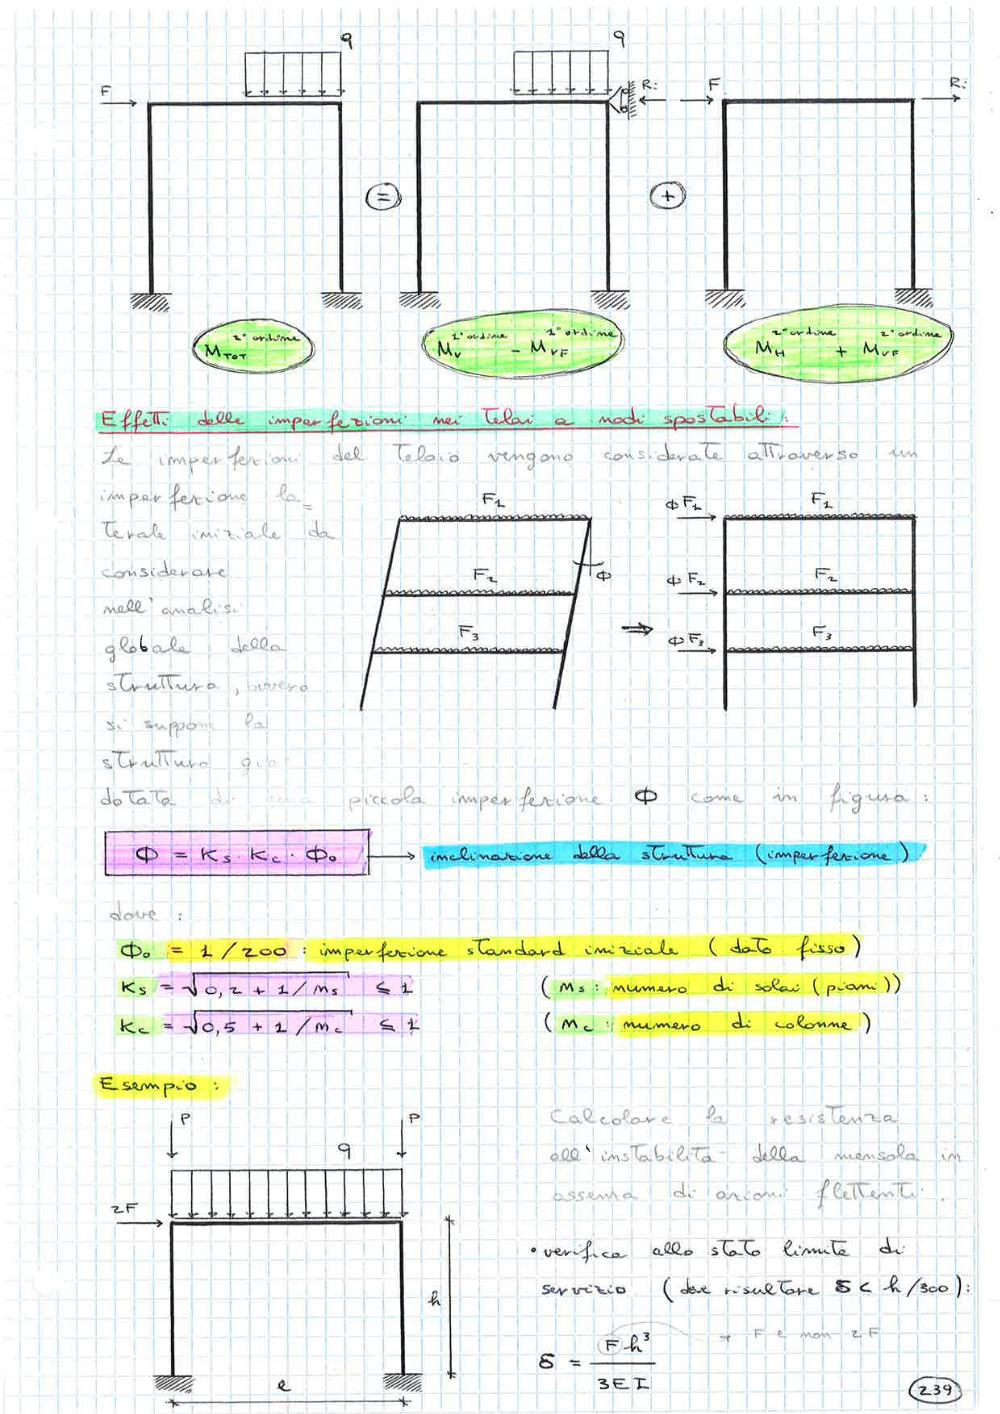 q q
F R: F R:
= +
M_TOT 2° ordine M_V 1° ordine - M_VF 1° ordine M_H 2° ordine + M_VF 2° ordine
Effetti delle imperfezioni nei telai a nodi spostabili:
Le imperfezioni del telaio vengono considerate attraverso un
imperfezione la=
terale iniziale da
considerare
nell'analisi
globale della
struttura, ovvero
si suppone la
struttura già
dotata di una piccola imperfezione Φ come in figura:
F1 ΦF1 F1
F2 Φ ΦF2 F2
F3 ⇒ ΦF3 F3
Φ = Ks · Kc · Φo → inclinazione della struttura (imperfezione)
dove :
Φo = 1/200 : imperfezione standard iniziale (dato fisso)
Ks = √0,2 + 1/ms ≤ 1 (ms: numero di solai (piani))
Kc = √0,5 + 1/mc ≤ 1 (mc: numero di colonne)
Esempio :
P P
q
2F
h
l
Calcolare la resistenza
all'instabilità della mensola in
assenza di azioni flettenti.
• verifica allo stato limite di
servizio (deve risultare δ < h/300):
δ = F h³ / 3EI → F e non 2F
239